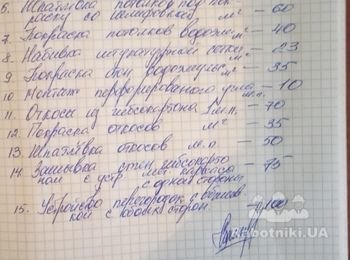 6. Шпатлёвка потолков под пок-
раску со шлифовкой м² – 60
7. Покраска потолков водоэм. м² – 40
8. Набивка штукатурной сетки м² – 23
9. Покраска стен водоэмульс. м² – 35
10 Монтаж перфорированного угла м.п. – 10
11. Откосы из гипсокартона 1м.п. – 70
12. Покраска откосов м² – 35
13. Шпатлёвка откосов м.п – 50
14. Зашивка стен гипсокарто
ном с устр. мет. каркаса – 75
с одной стороны
15. Устройство перегородок с обшив
кой с обеих сторон – 100
Rabotniki.UA